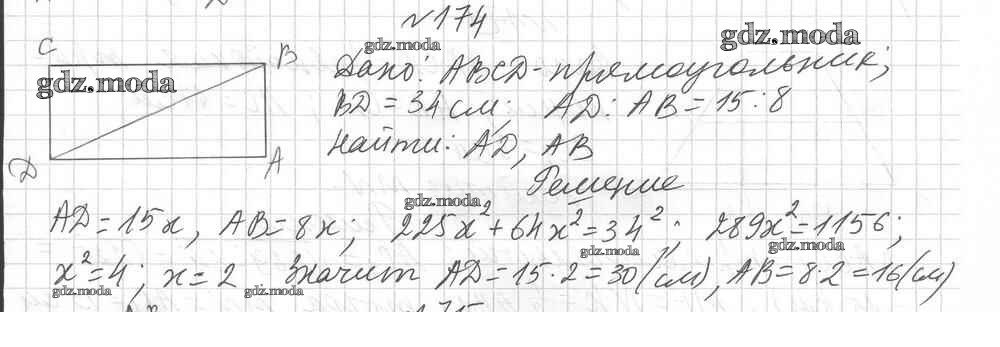 №174
gdz.moda
gdz.moda
C
B
gdz.moda
Дано: ABCD - прямоугольник;
BD = 34 см; AD : AB = 15 : 8
Найти: AD, AB
D
A
Решение
gdz.moda
AD = 15x, AB = 8x; 225x² + 64x² = 34²; 289x² = 1156;
gdz.moda
gdz.moda
x² = 4; x = 2 Значит AD = 15 · 2 = 30 (см), AB = 8 · 2 = 16 (см)
gdz.moda
gdz.moda